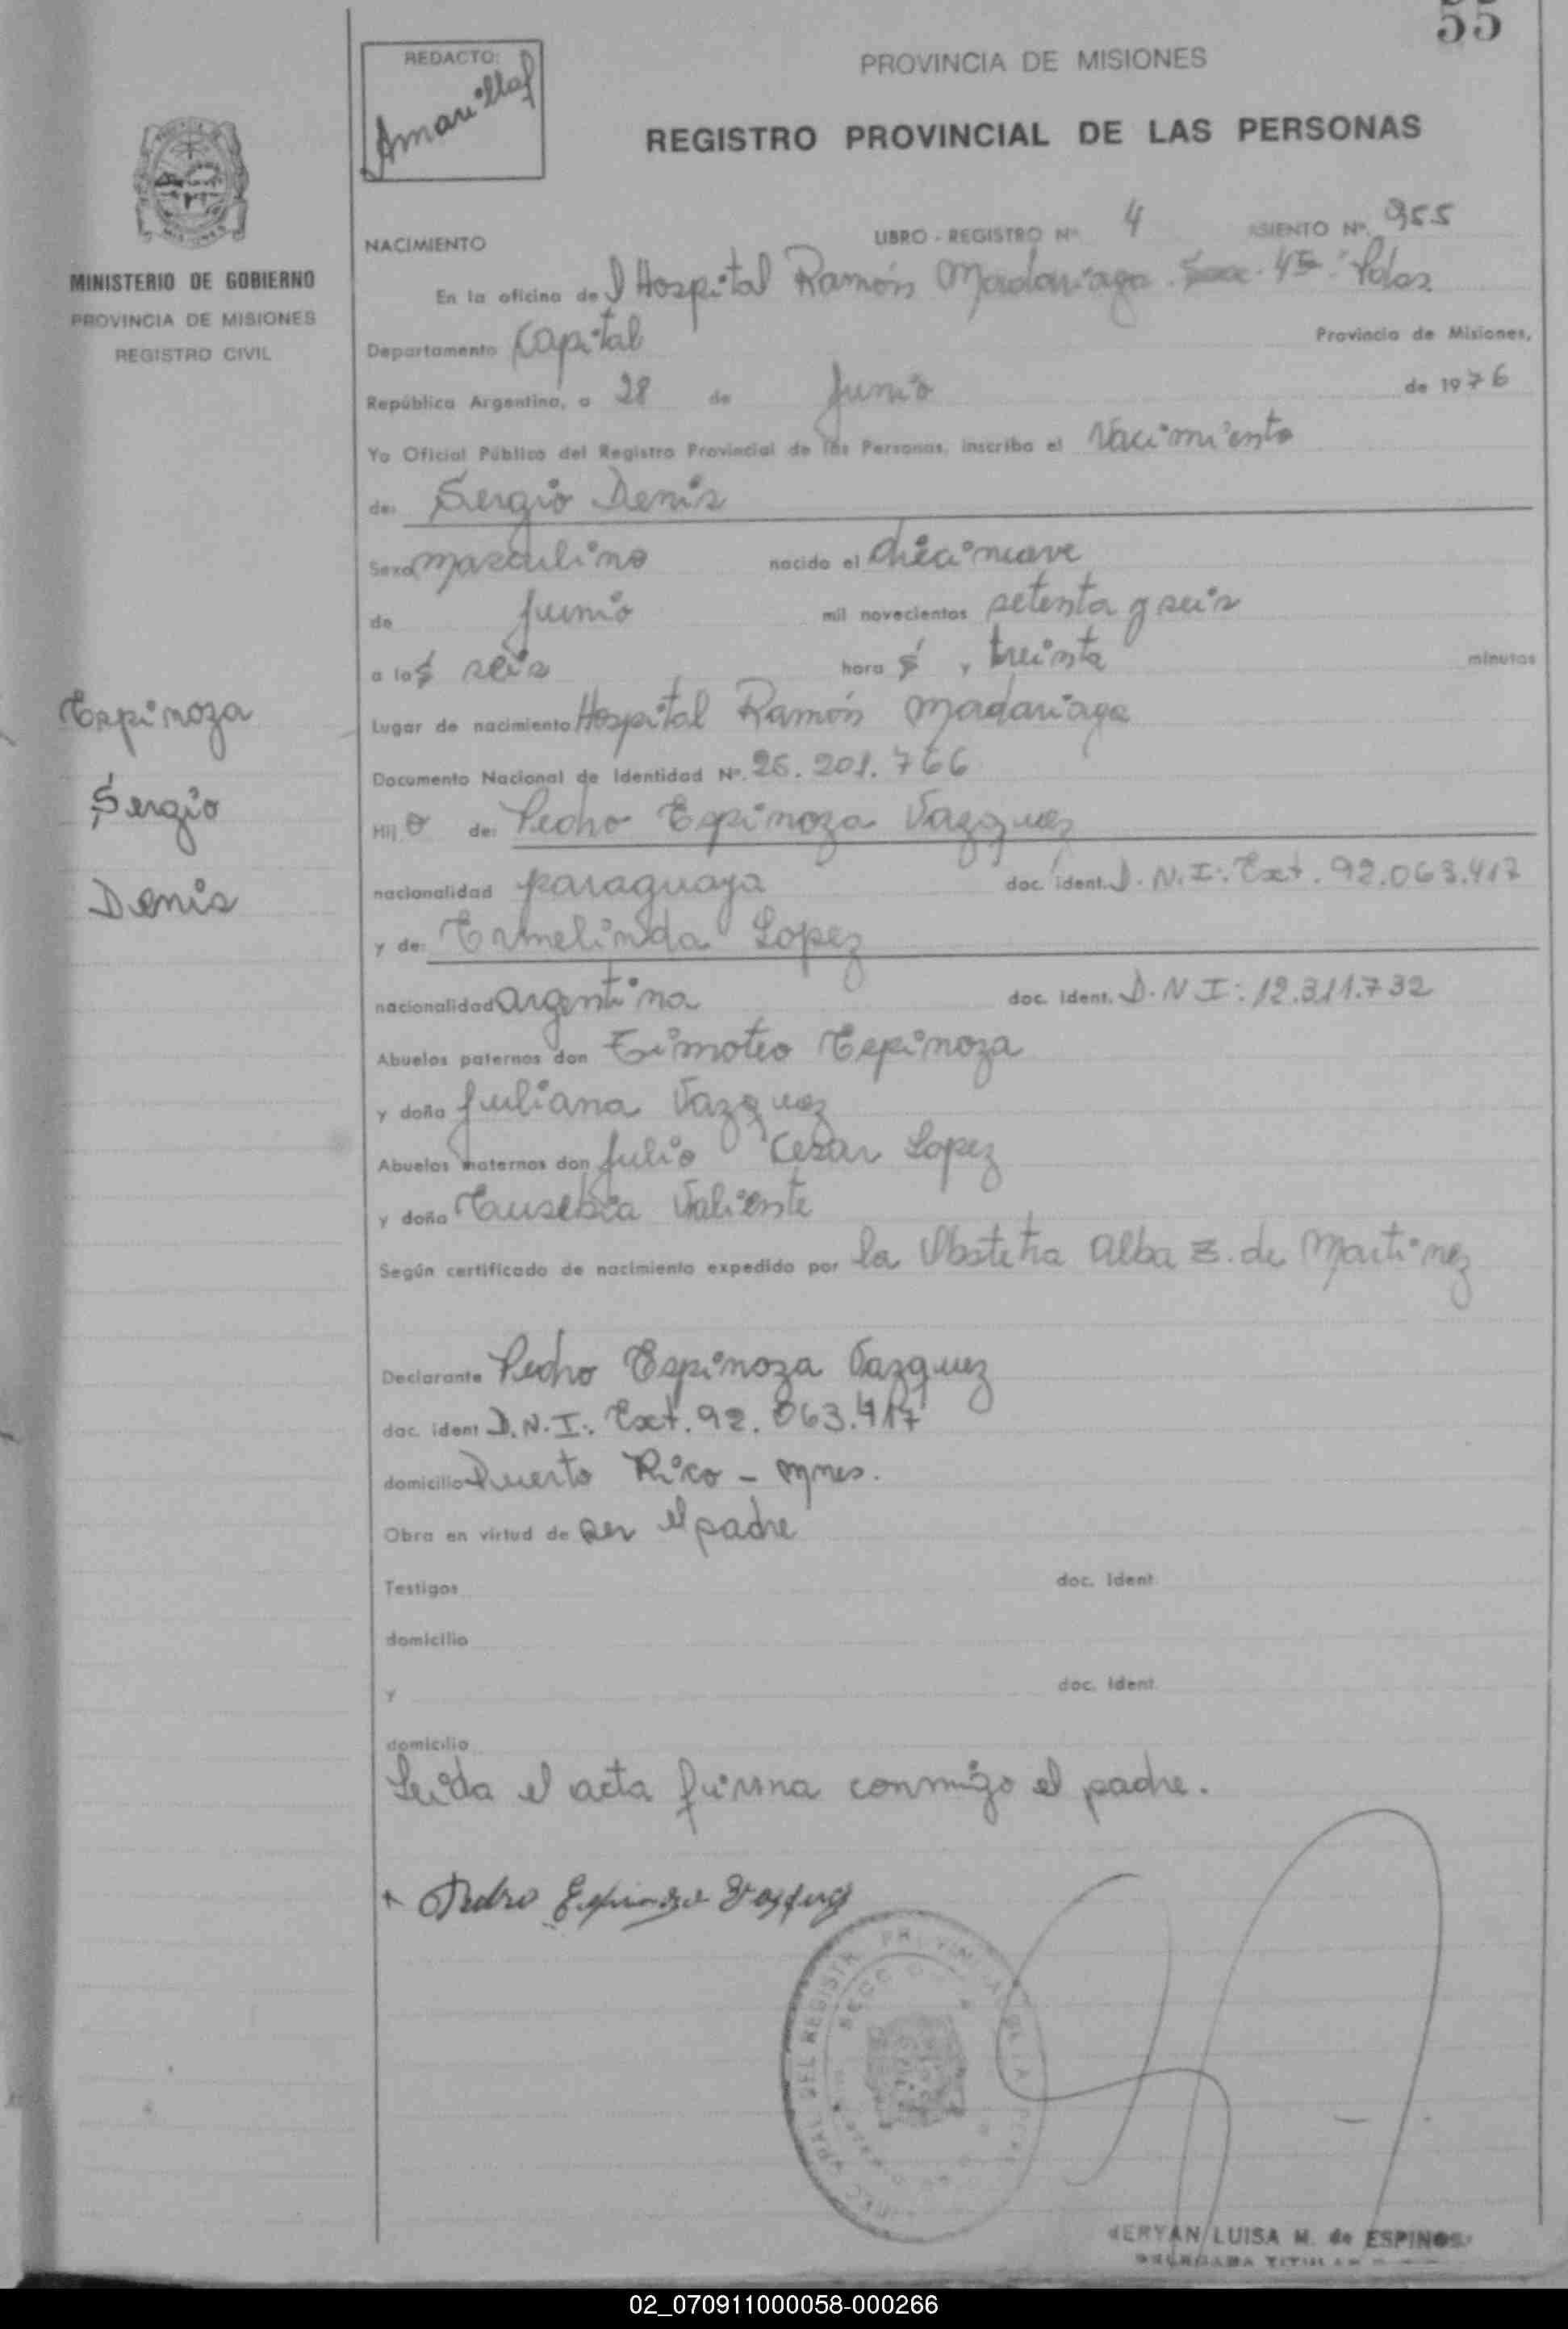 55
REDACTO:
Amarillaf
PROVINCIA DE MISIONES
REGISTRO PROVINCIAL DE LAS PERSONAS
NACIMIENTO
LIBRO - REGISTRO Nº 4 ASIENTO Nº 955
MINISTERIO DE GOBIERNO
PROVINCIA DE MISIONES
REGISTRO CIVIL
En la oficina del Hospital Ramón Madariaga Secc. 4ta Pdas
Departamento Capital Provincia de Misiones,
República Argentina, a 28 de Junio de 1976
Yo Oficial Público del Registro Provincial de las Personas, inscribo el Nacimiento
de: Sergio Denis
Sexo masculino nacido el diecinueve
de junio mil novecientos setenta y seis
a las seis horas y treinta minutos
Lugar de nacimiento Hospital Ramón Madariaga
Documento Nacional de Identidad Nº. 25.201.766
Hijo de: Pedro Espinoza Vazquez
nacionalidad paraguaya doc. ident. D.N.I: Ext. 92.063.417
y de: Ermelinda Lopez
nacionalidad argentina doc. ident. D.N.I: 12.311.732
Abuelos paternos don Timoteo Espinoza
y doña Juliana Vazquez
Abuelos maternos don Julio Cesar Lopez
y doña Eusebia Valiente
Según certificado de nacimiento expedido por la Obstetra Alba Z. de Martinez
Declarante Pedro Espinoza Vazquez
doc. ident D.N.I: Ext. 92.063.417
domicilio Puerto Rico - Mnes.
Obra en virtud de ser el padre
Testigos doc. ident.
domicilio
y doc. ident.
domicilio
Leida el acta firma conmigo el padre.
Pedro Espinoza Vazquez
LUISA M. de ESPINOS
Espinoza
Sergio
Denis
02_070911000058-000266